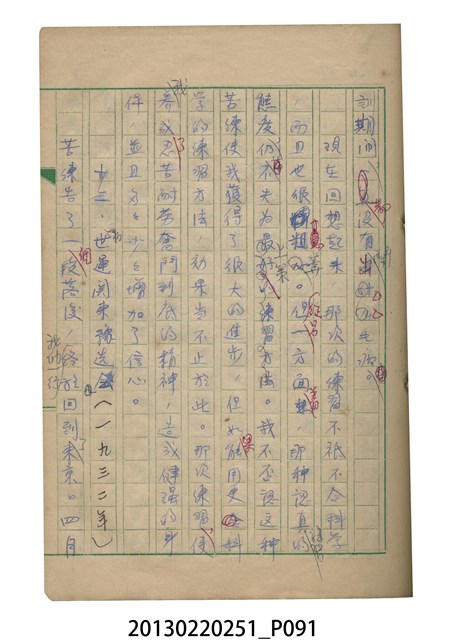 訓期間，都沒有出什么毛病。
現在回想起來，那次的練習不祇不合科學
，而且也很粗魯。但另一方面，那種認真的
態度仍不失為最好的練習方法。我不否認這種
苦練使我獲得了很大的進步，但如果能用更科
學的練習方法，効果當不止於此。那次練習使我
養成了忍苦耐勞奮鬥到底的精神，造成健强的身
件，並且多多少少增加了信心。
十三、世運関東豫選會（一九三二年）
苦練告了一個段落後，我们一行終於回到東京。四月
20130220251_P091